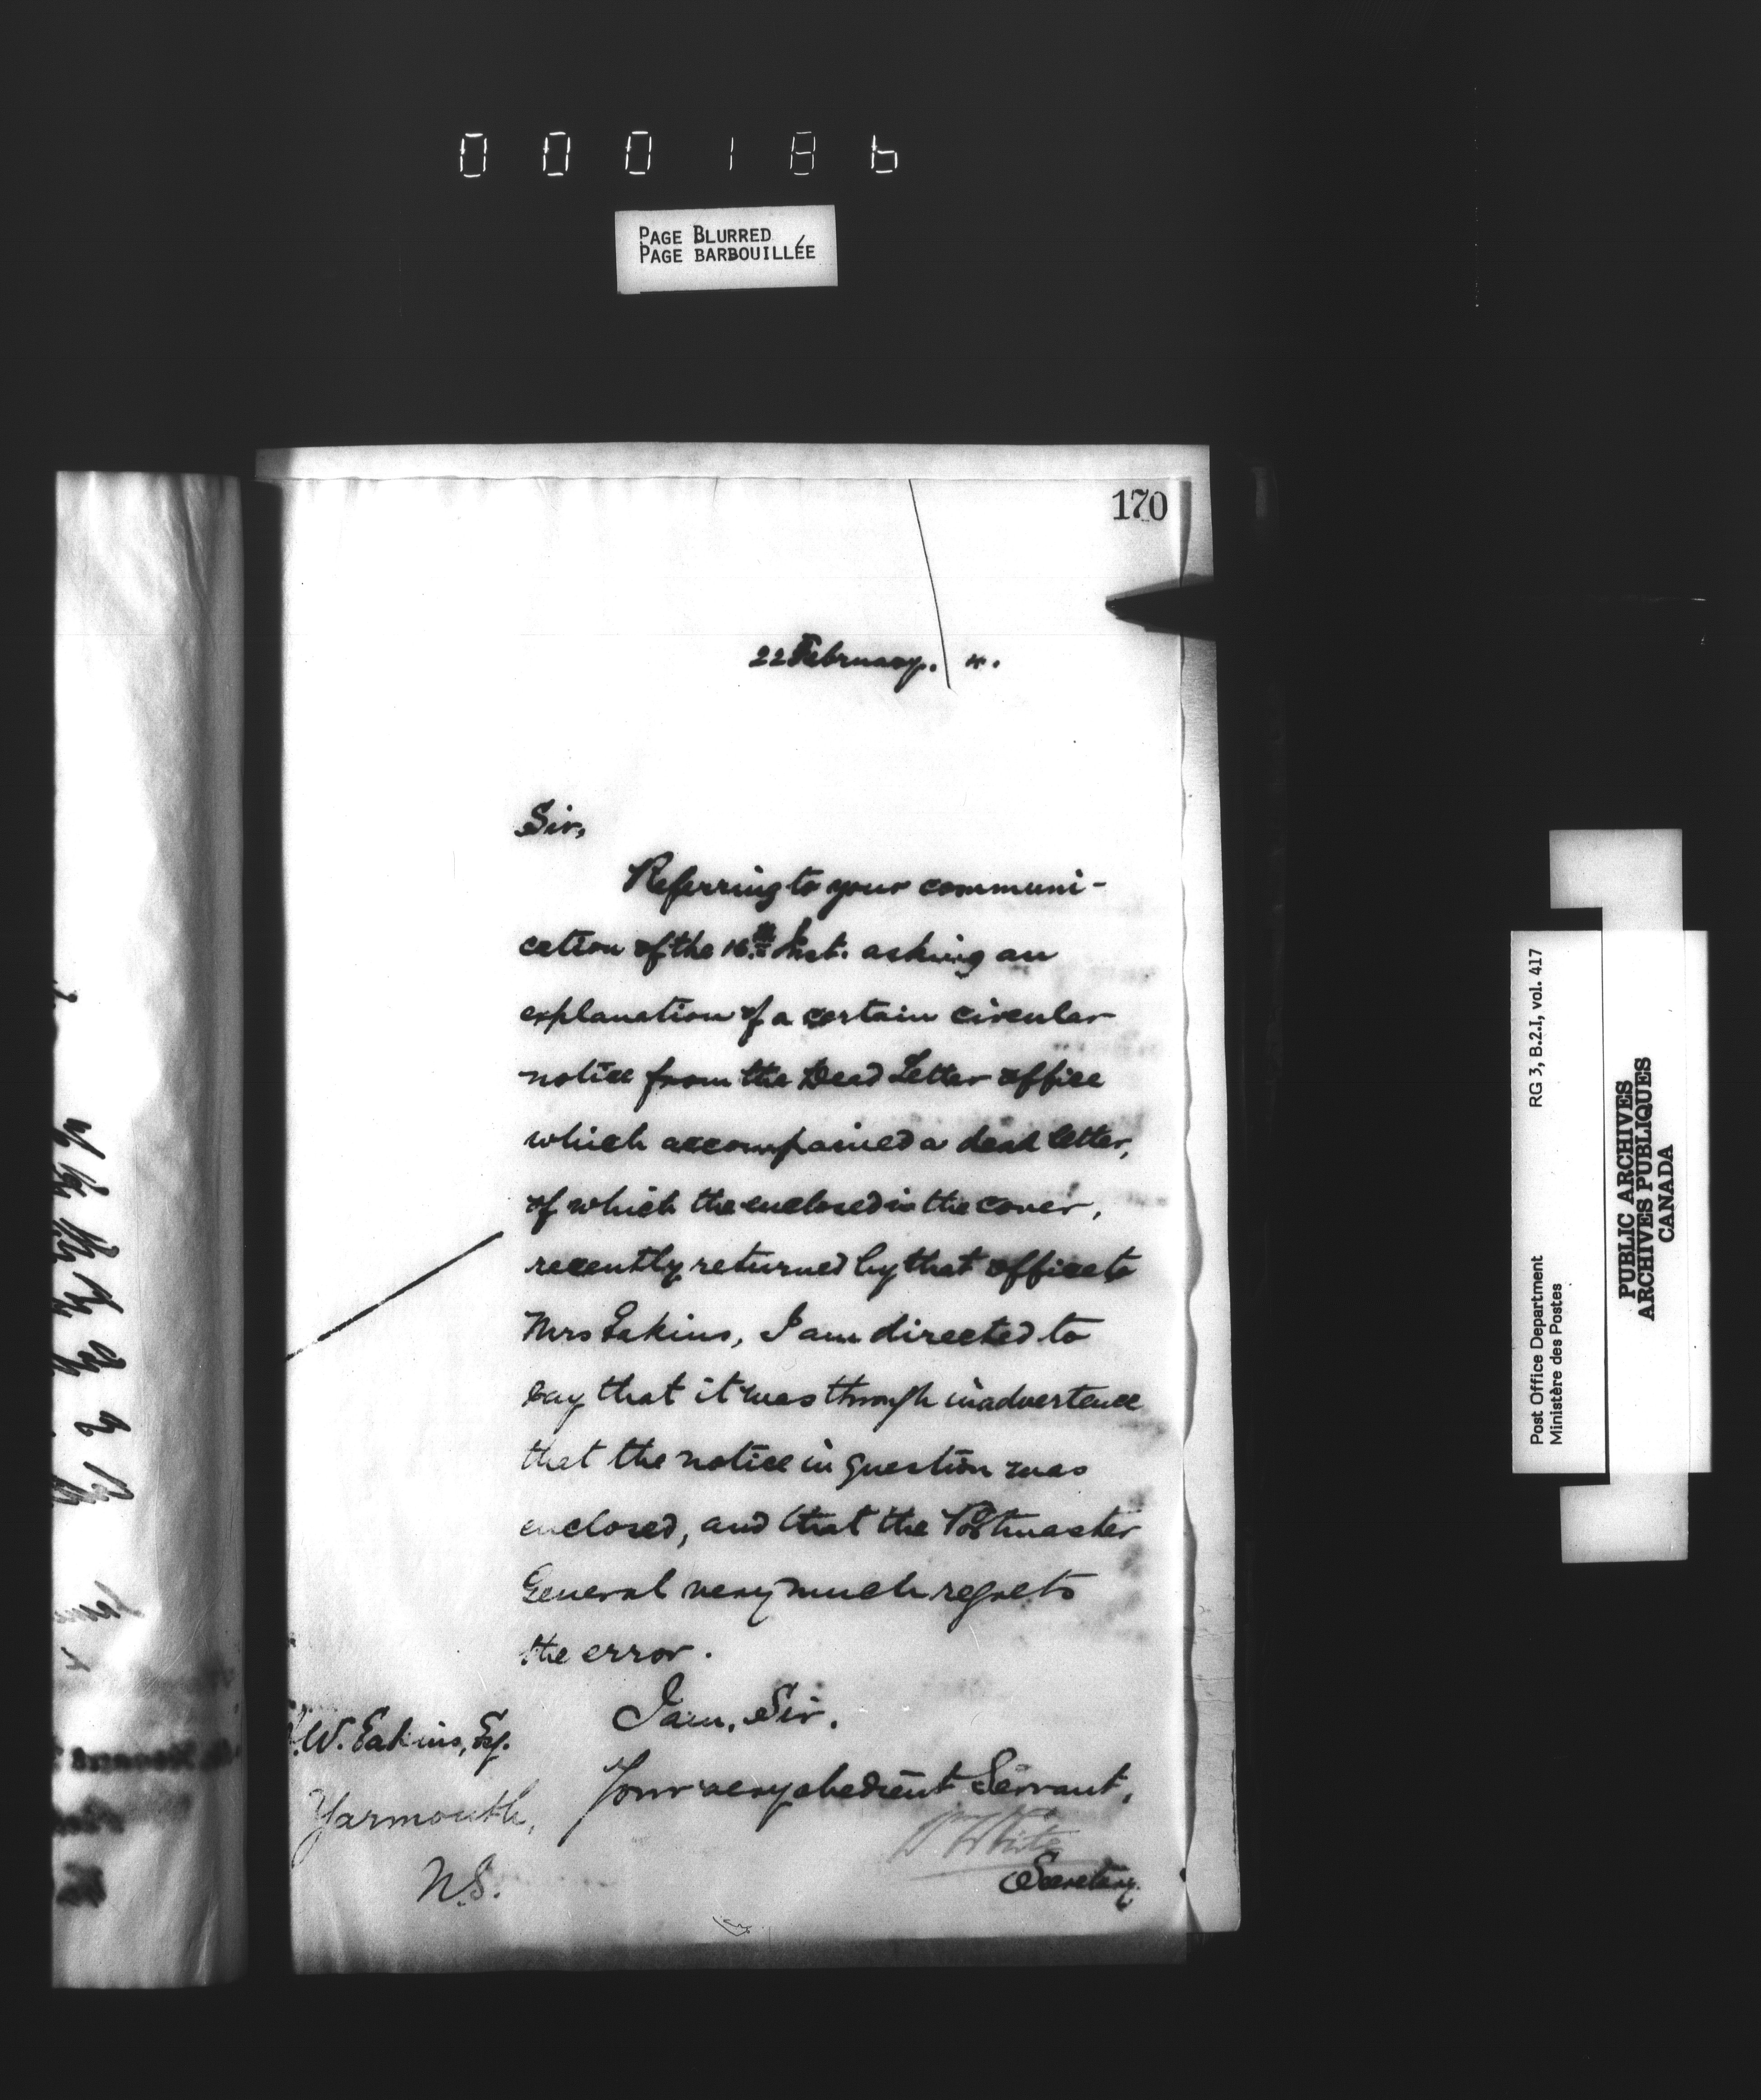 000186
PAGE BLURRED
PAGE BARBOUILLÉE
170
22 February.
Sir,
Referring to your communi-
cation of the 16th Inst. asking an
explanation of a certain circular
notice from the Dead Letter Office
which accompanied a dead letter,
of which the enclosed is the cover,
recently returned by that office to
Mrs Eakins, I am directed to
say that it was through inadvertence
that the notice in question was
enclosed, and that the Postmaster
General very much regrets
the error.
I am, Sir,
Your very obedient Servant,
W White
Secretary.
W. Eakins, Esq.
Yarmouth,
N.S.
RG 3, B.2.I, vol. 417
Post Office Department
Ministère des Postes
PUBLIC ARCHIVES
ARCHIVES PUBLIQUES
CANADA